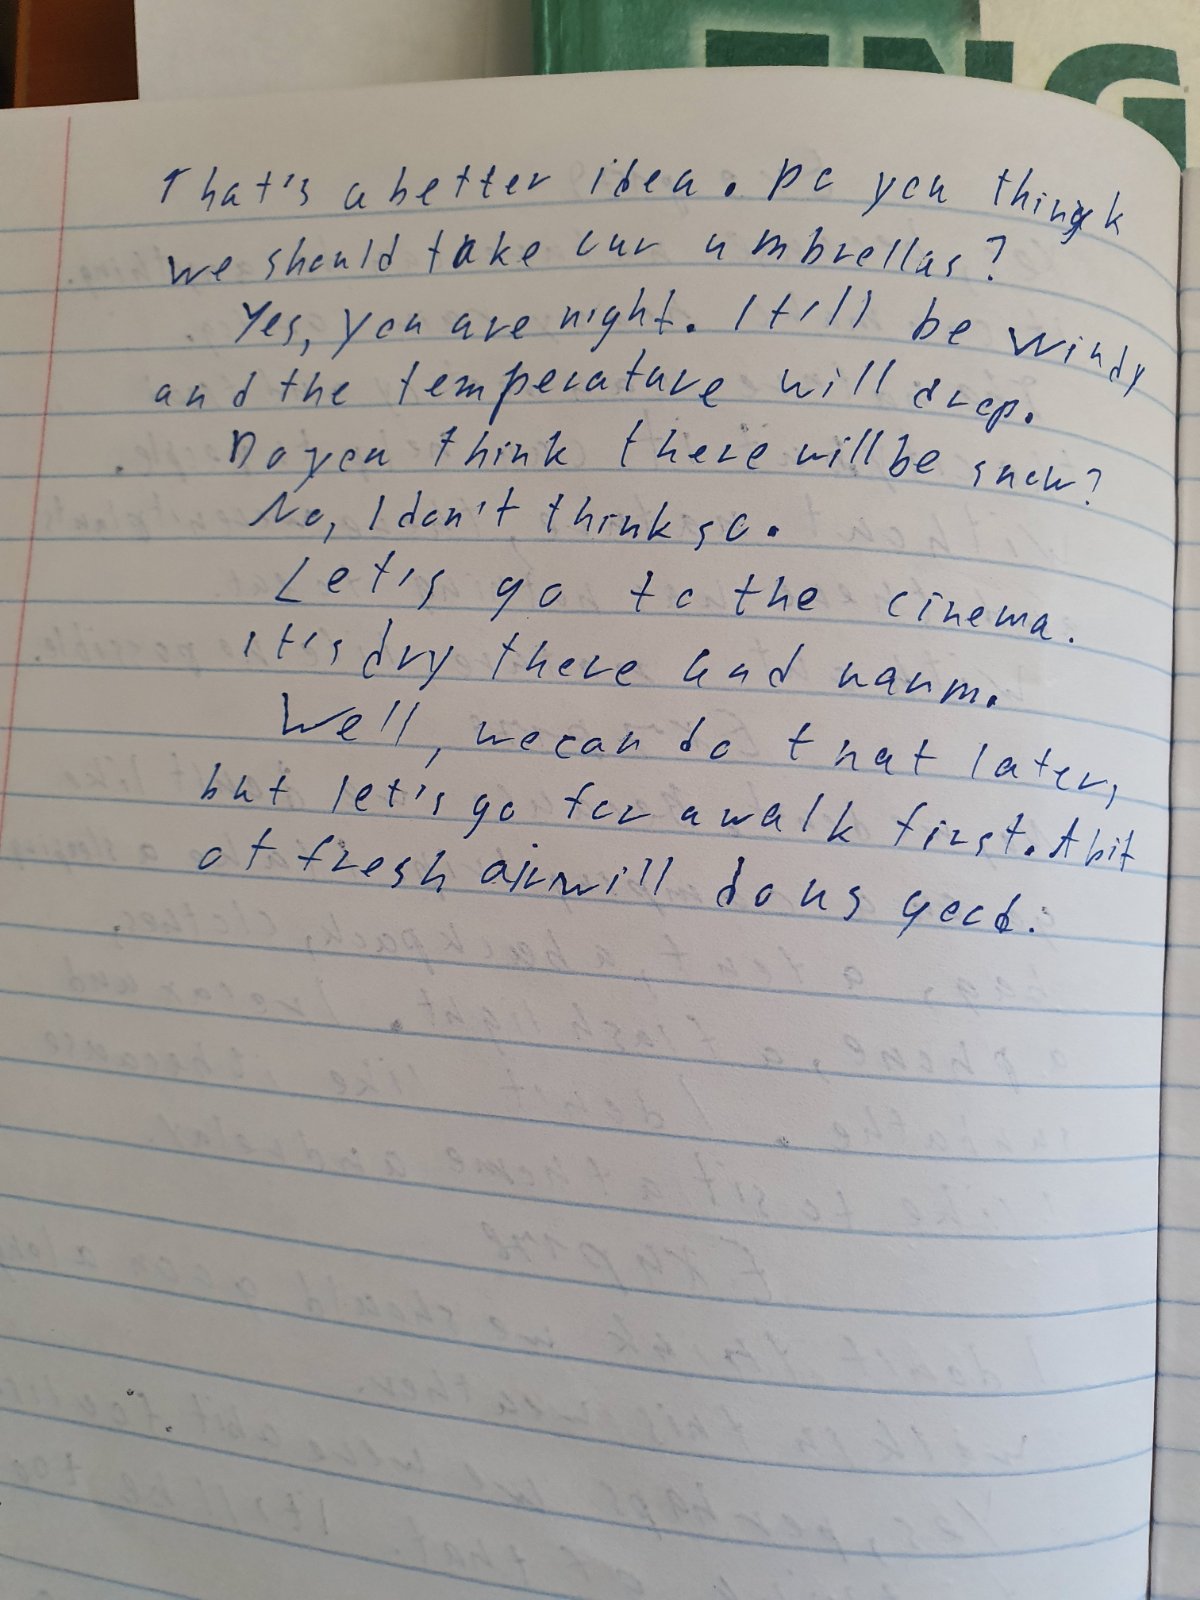 ENG
That's a better idea. Do you think
we should take our umbrellas?
Yes, you are right. It'll be windy
and the temperature will drop.
Do you think there will be snow?
No, I don't think so.
Let's go to the cinema.
It's dry there and warm.
Well, we can do that later,
but let's go for a walk first. A bit
of fresh air will do us good.